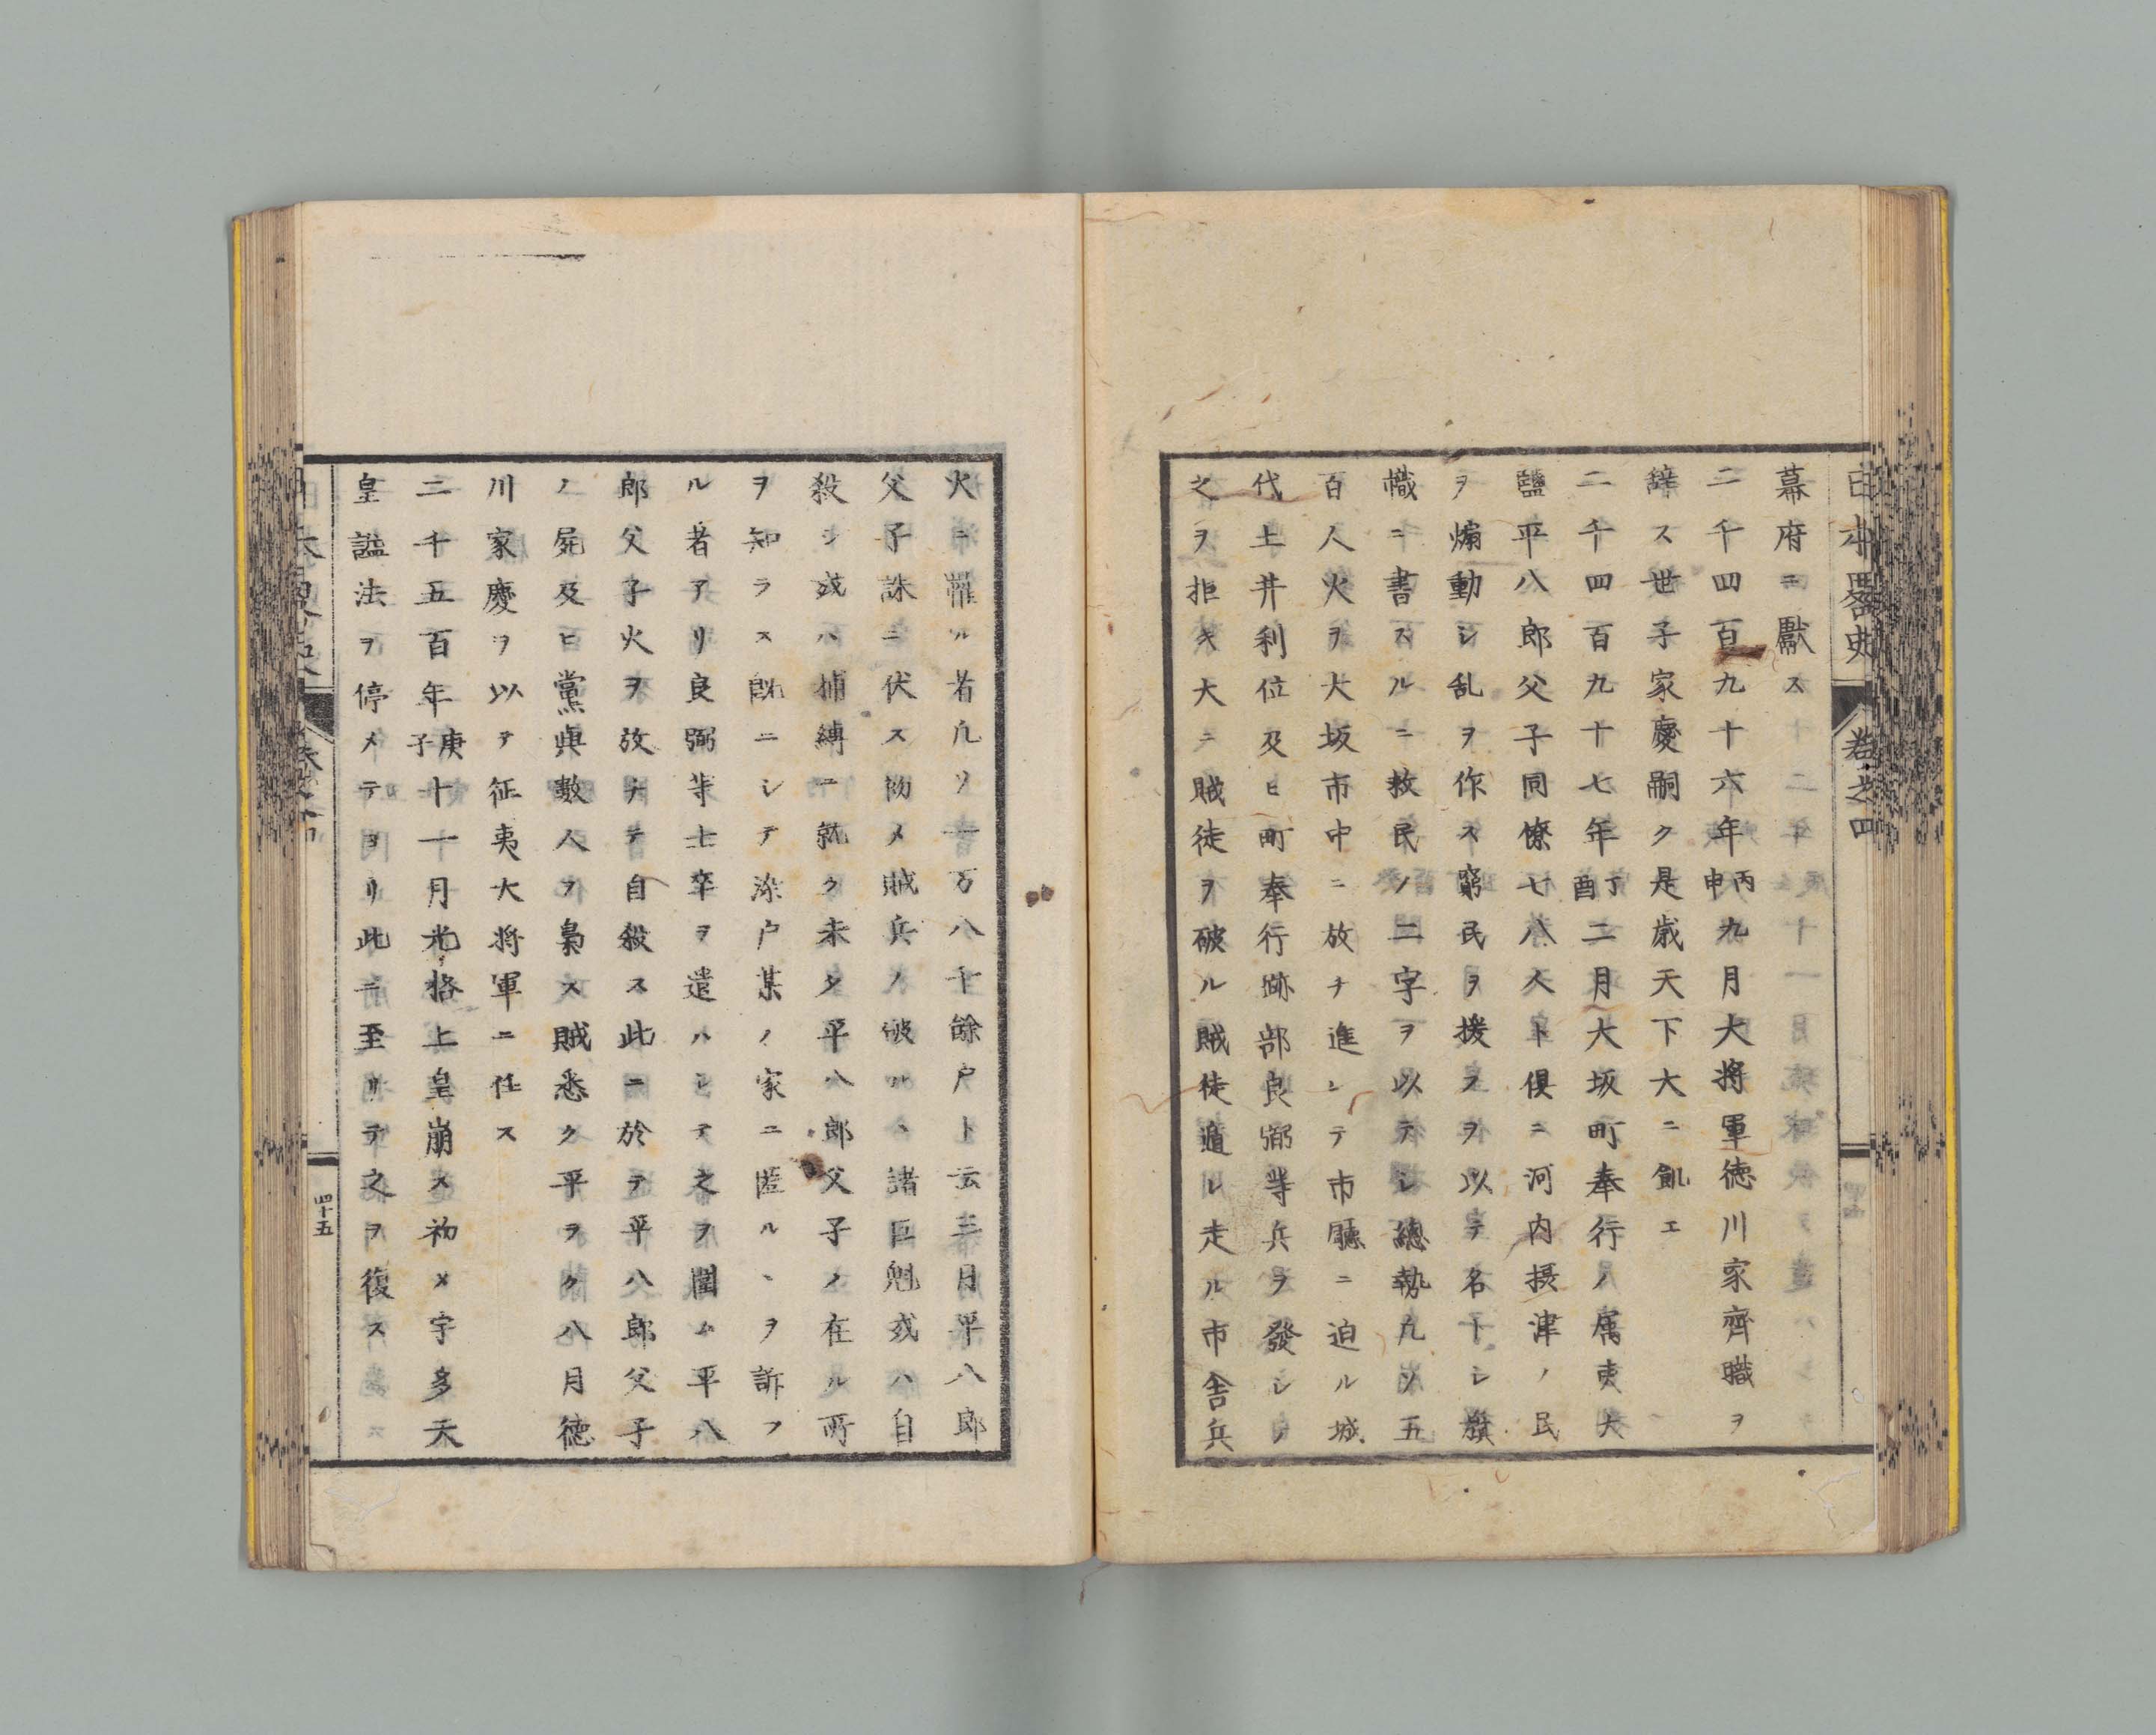 日本畧史 卷之四
幕府ニ獻ス
二千四百九十六年丙申九月大将軍徳川家齊職ヲ
辭ス世子家慶嗣ク是歳天下大ニ飢エ
二千四百九十七年丁酉二月大坂町奉行ノ属吏大
鹽平八郎父子同僚七八人ト倶ニ河内摂津ノ民
ヲ煽動シ乱ヲ作ス窮民ヲ援フヲ以テ名トシ旗
幟ニ書スルニ救民ノ二字ヲ以テシ總勢凢ソ五
百人火ヲ大坂市中ニ放チ進ンテ市廳ニ迫ル城
代土井利位及ヒ町奉行跡部良弼等兵ヲ發シ
之ヲ拒キ大ニ賊徒ヲ破ル賊徒遁レ走ル市舎兵
火ニ罹ル者凢ソ一万八千餘戸ト云三月平八郎
父子誅ニ伏ス初メ賊兵ノ破ルヽヽ諸巨魁或ハ自
殺シ或ハ捕縛ニ就ク未タ平八郎父子ノ在ル所
ヲ知ラス既ニシテ染戸某ノ家ニ匿ルヽヲ訴フ
ル者アリ良弼等士卒ヲ遣ハシテ之ヲ圍ム平八
郎父子火ヲ放チテ自殺ス此ニ於テ平八郎父子
ノ屍及ヒ黨與數人ヲ梟ス賊悉ク平ラク八月徳
川家慶ヲ以テ征夷大将軍ニ任ス
二千五百年庚子十一月光格上皇崩ス初メ宇多天
皇謚法ヲ停メテヨリ此ニ至リテ之ヲ復ス
四十五